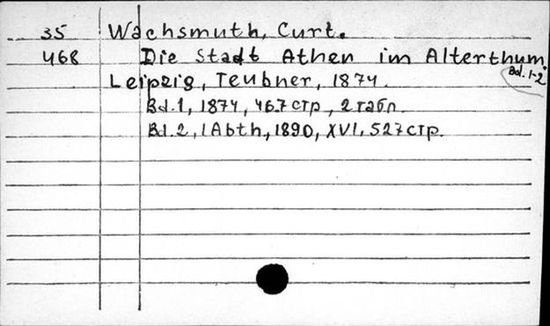 35 Wachsmuth, Curt.
468 Die Stadt Athen im Alterthum
Bd. 1-2
Leipzig, Teubner, 1874.
Bd. 1, 1874, 467 стр, 2 табл.
Bd. 2, 1 Abth, 1890, XVI, 527 стр.